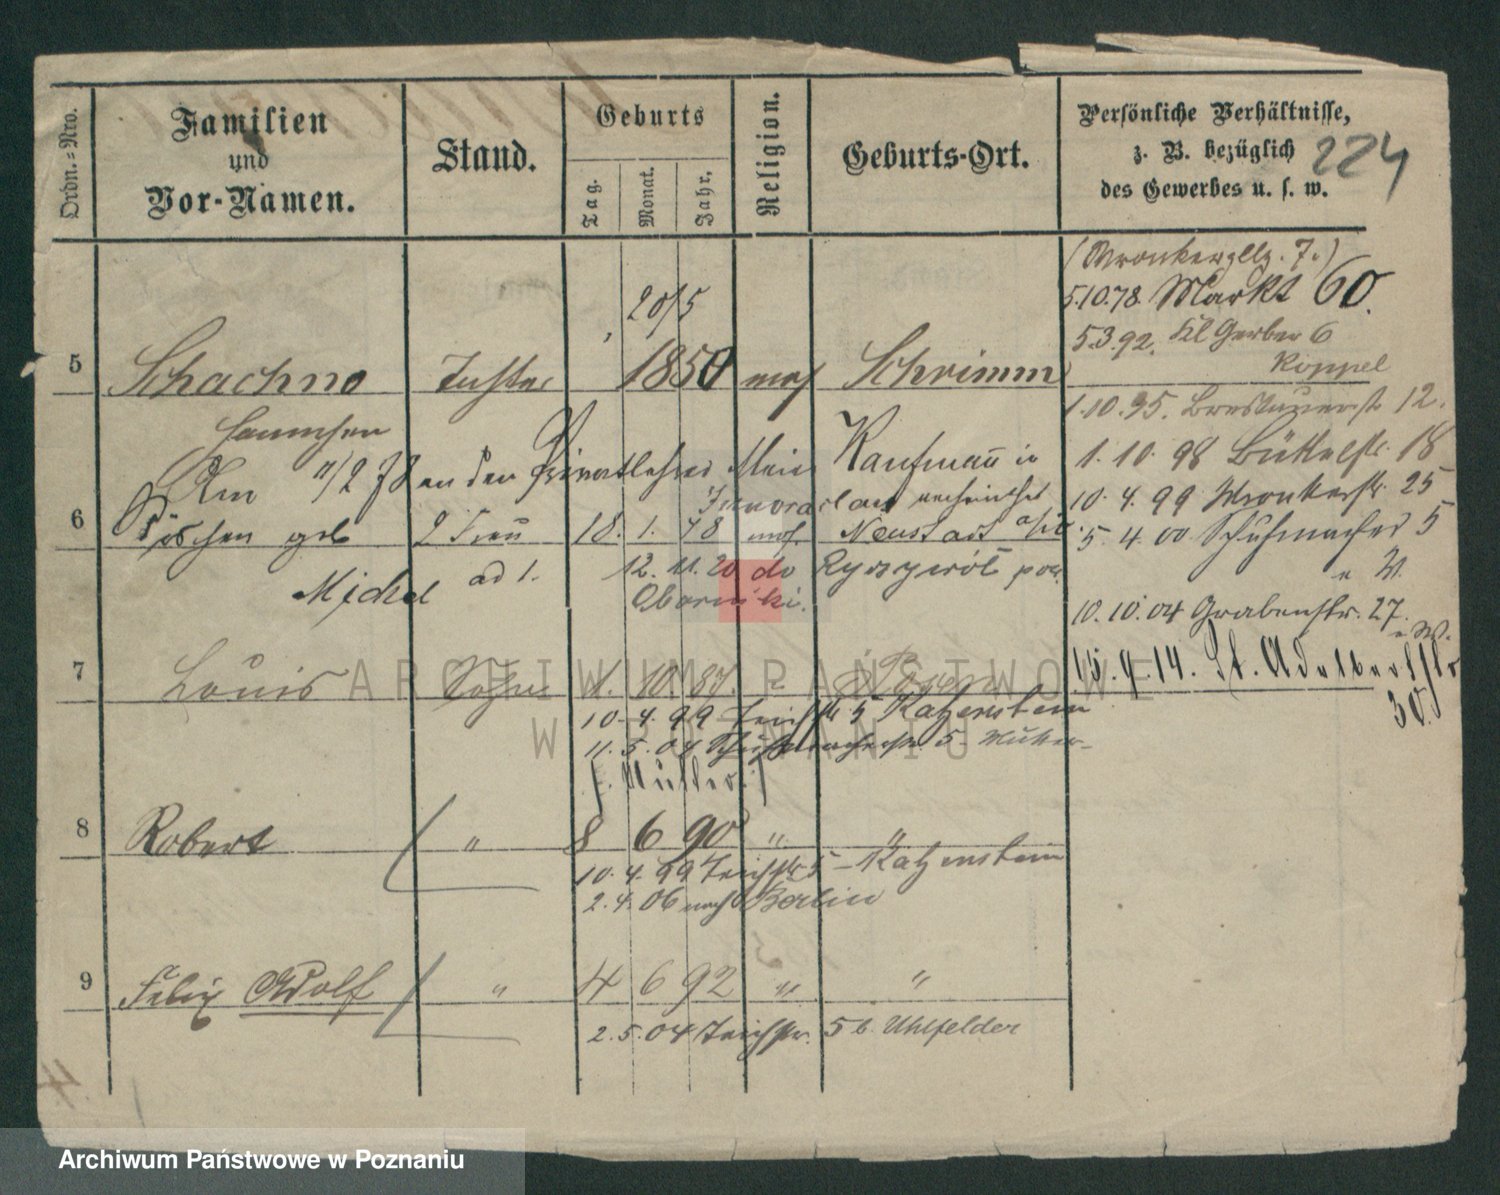 Ordn.=Nro.
Familien
und
Vor-Namen.
Stand.
Geburts
Tag.
Monat.
Jahr.
Religion.
Geburts-Ort.
Persönliche Verhältnisse,
z. B. bezüglich
des Gewerbes u. s. w.
224
(Wronkerstr. 7.)
5.10.78. Markt 60.
5.3.92. Kl Gerber 6
Koppel
20/5
5 Schachno 1850 mos Schrimm
1.10.95. Breslauerstr 12.
Am 11/2 78 an den Privatlehrer Kaufmann in
verheirathet
1. 10. 98 Büttelstr. 18
10. 4. 99 Wronkerstr. 25
6 geb 2 Frau 18. 1. 78 mos. Neustadt a/W
5. 4. 00 Schuhmacher 5
b. W.
Michel ad 1. 12. 11. 20 do Ryczywół pow.
Obornicki.
10. 10. 04 Grabenstr. 27.
b. W.
7 Louis Sohn 1. 10 87. " Posen
15. 9. 14. St. Adalbertstr
30.
10. 4. 99 Teichstr 5 Katzenstein
11. 5. 04 Schuhmacherstr. 5 Mutter
(Müller)
8 Robert " 8 6 90 " "
10. 4. 99 Teichstr 5 - Katzenstein
2. 4. 06 nach Berlin
9 Felix Adolf " 4 6 92 " "
2. 5. 04 Teichstr. 5 b. Uhlfelder
ARCHIWUM PAŃSTWOWE
W POZNANIU
Archiwum Państwowe w Poznaniu